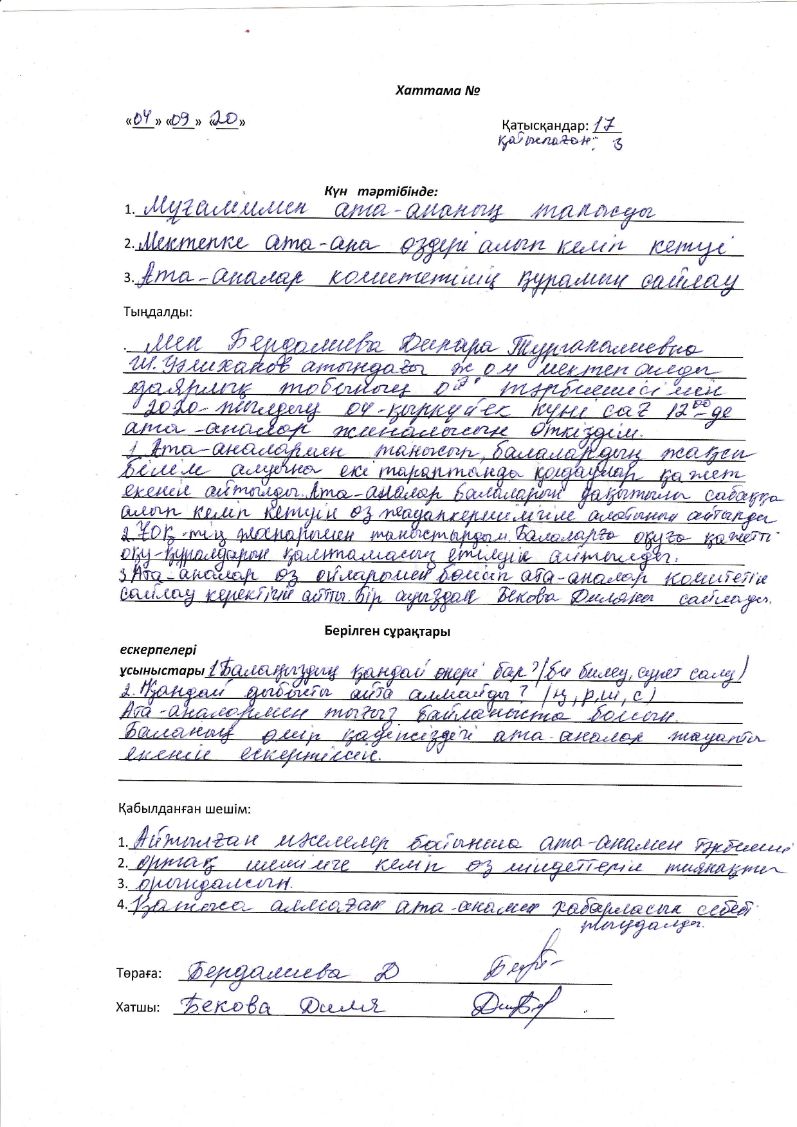 Хаттама №
«04» «09» «20»
Қатысқандар: 17
қатыспаған: 3
Күн тәртібінде:
1. Мұғаліммен ата-ананың танысды
2. Мектепке ата-ана өздері алып келіп кетуі
3. Ата-аналар комитетінің құрамын сайлау
Тыңдалды:
. Мен Бердалиева Динара Турганалиевна
Ш. Уәлиханов атындағы ж о м мектеп алды
даярлық тобының тәрбиешісі мен
2020-жылдың 04-қыркүйек күні сағ 12⁰⁰-де
ата-аналар жиналысын өткіздім.
1. Ата-аналармен танысып, балалардың жақсы
білім алуына екі тараптанда қолдаулар қажет
екенін айтылды. Ата-аналар балаларын уақытылы сабаққа
алып келіп кетуін өз жауапкершілігіне алатынын айтылды
2. ҰОҚ-тің жоспарымен таныстырдым. Балаларға оқуға қажетті
оқу-құралдарын қамтамасыз етілуін айтылды.
3. Ата-аналар өз ойларымен бөлісіп ата-аналар комитетін
сайлау керектігін айтты. Бір ауыздан Бекова Диляны сайлады.
Берілген сұрақтары
ескерпелері
ұсыныстары 1. Балаңыздың қандай өнері бар? (би билеу, сурет салу)
2. Қандай дыбысты айта алмайды? (ң, р, ш, с)
Ата-аналармен тығыз байланыста болсын.
Баланың өмір қауіпсіздігі ата-аналар жауапты
екенін ескертілсін.
Қабылданған шешім:
1. Айтылған мәселелер бойынша ата-анамен тәрбиеші
2. ортақ шешімге келіп өз міндеттерін тиянақты
3. орындалсын.
4. Қатыса алмаған ата-анамен хабарласып себебі
тыңдалды.
Төраға: Бердалиева Д
Хатшы: Бекова Диля